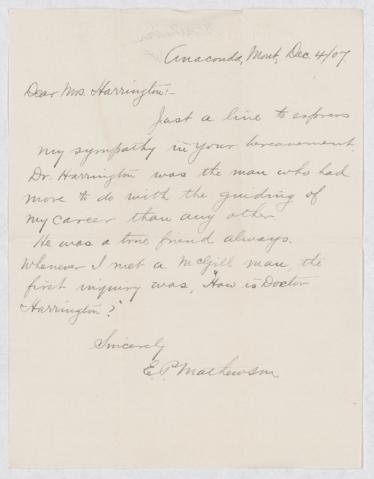 Anaconda, Mont, Dec 4/07.
Dear Mrs. Harrington:-
Just a line to express
my sympathy in your bereavement
Dr. Harrington was the man who had
more to do with the guiding of
my career than any other.
He was a true friend always.
Whenever I met a McGill man, the
first inquiry was, "How is Doctor
Harrington?"
Sincerely
E. P. Mathewson